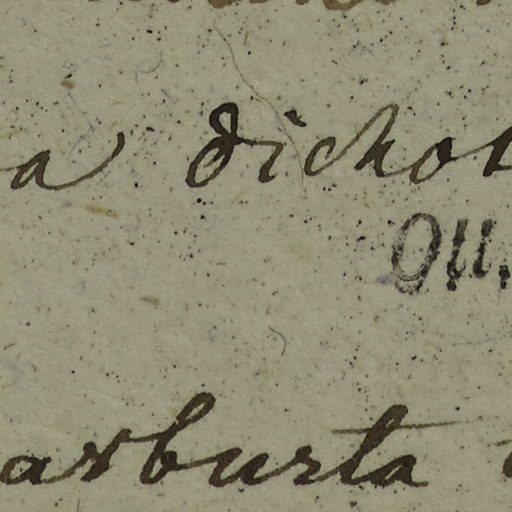 a dichot
Ou.
arbusta